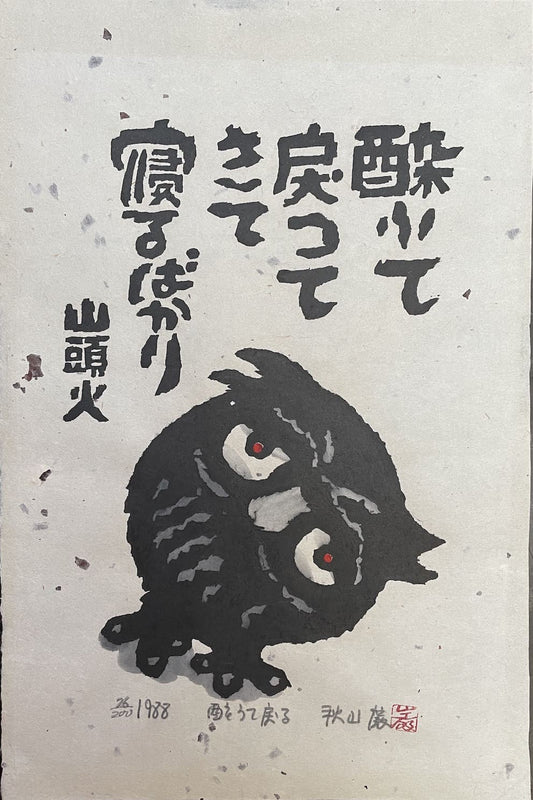 酔ふて
戻つて
きて
寝るばかり
山頭火
26/200 1988 酔うて戻る 秋山巌